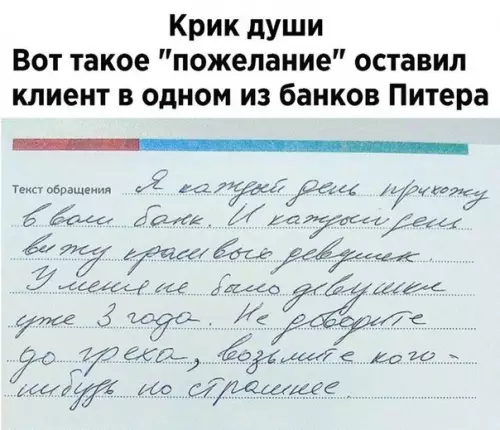 Крик души
Вот такое "пожелание" оставил
клиент в одном из банков Питера
Текст обращения Я каждый день прихожу
в ваш банк. И каждый день
вижу красивых девушек.
У меня не было девушки
уже 3 года. Не доводите
до греха, возьмите кого-
нибудь по страшнее.